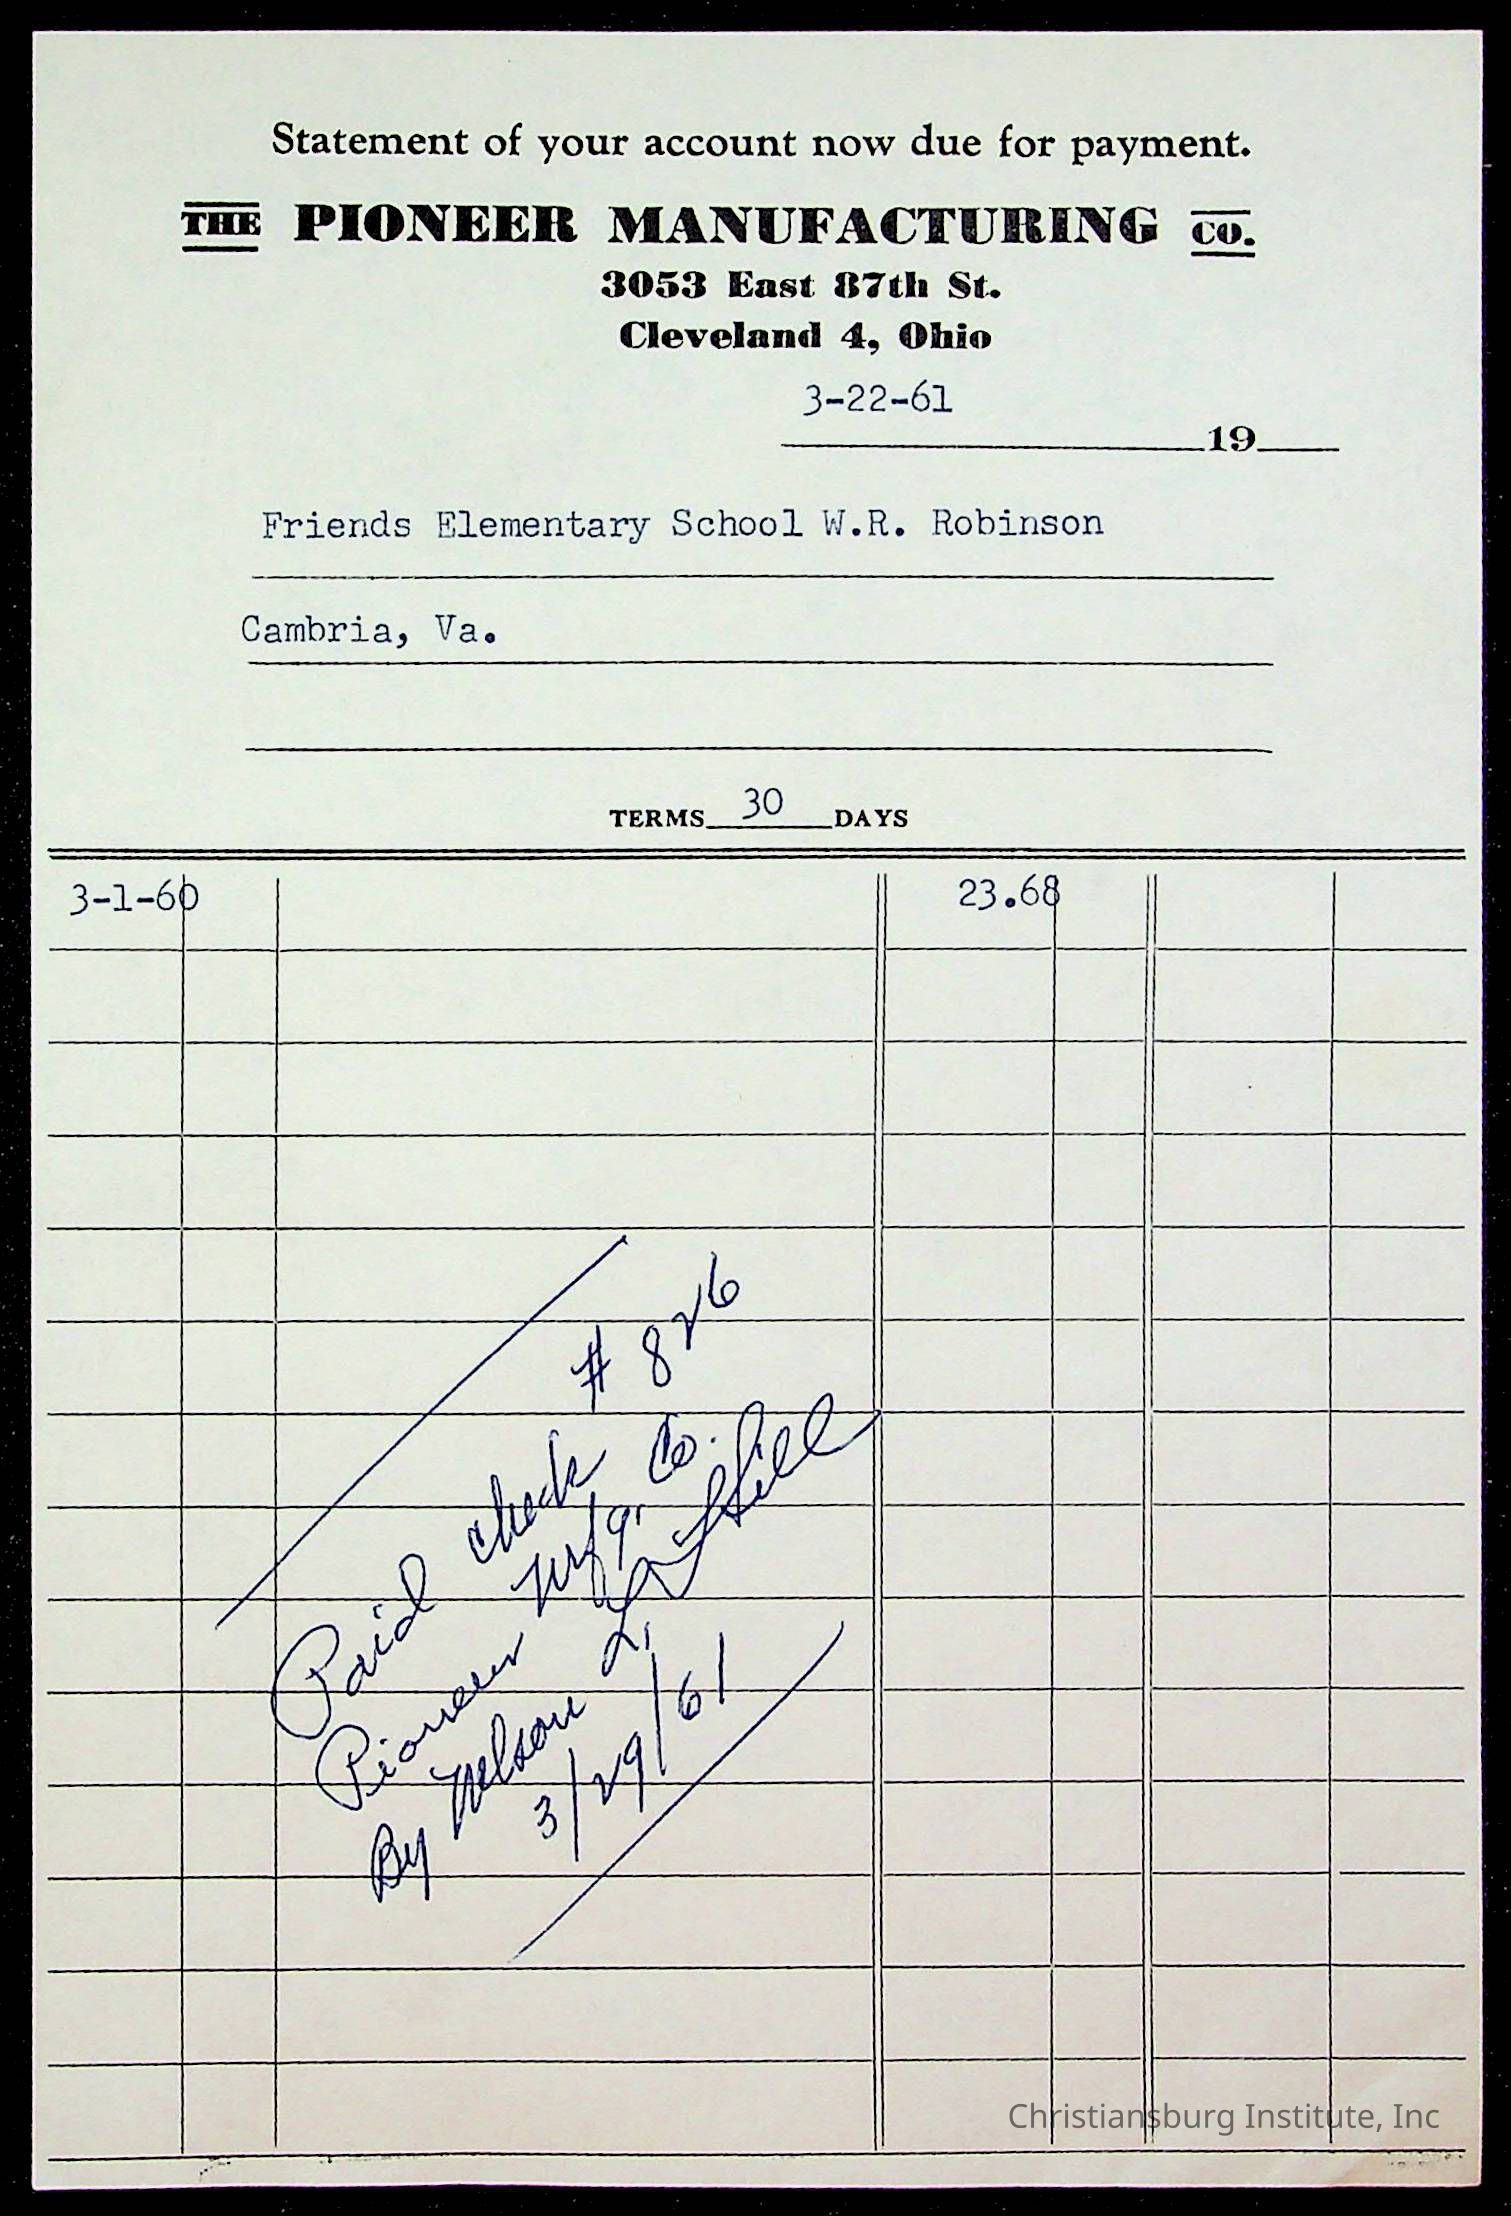 Statement of your account now due for payment.
THE PIONEER MANUFACTURING CO.
3053 East 87th St.
Cleveland 4, Ohio
3-22-61
19
Friends Elementary School W.R. Robinson
Cambria, Va.
TERMS 30 DAYS
3-1-60 23.68
Paid check # 826
Pioneer Mfg. Co.
By Nelson Hill
3/29/61
Christiansburg Institute, Inc